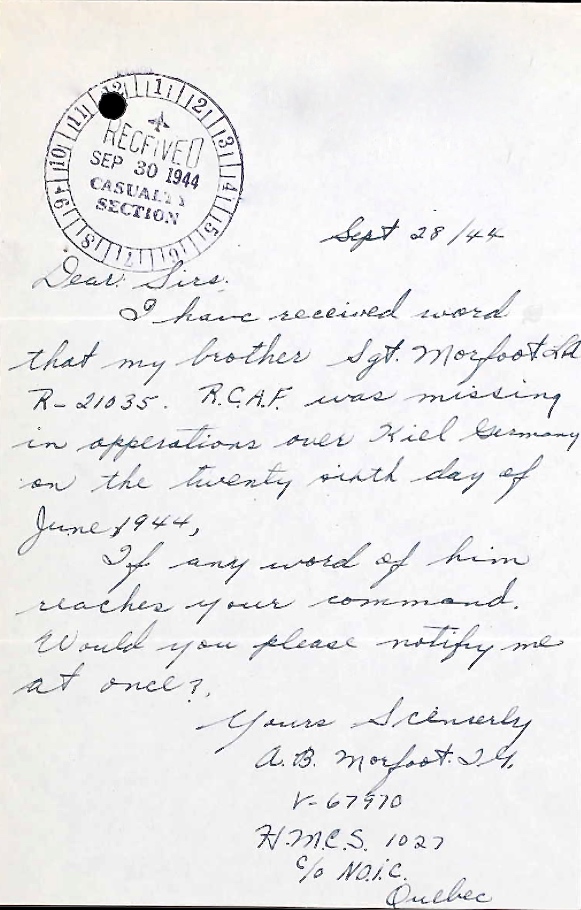 12 1 2 3 4 5 6 7 8 9 10 11
RECEIVED
SEP 30 1944
CASUALTY
SECTION
Sept 28/44
Dear Sirs.
I have received word
that my brother Sgt. Morfoot
R-21035. R.C.A.F. was missing
in opperations over Kiel Germany
on the twenty sixth day of
June, 1944,
If any word of him
reaches your command.
Would you please notify me
at once?.
Yours Scenserly
A. B. Morfoot.
V-67970
H.M.C.S. 1027
c/o N.O.I.C.
Quebec